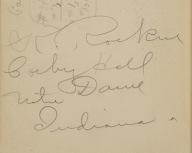 K. Rockne
Corby Hall
Notre Dame
Indiana